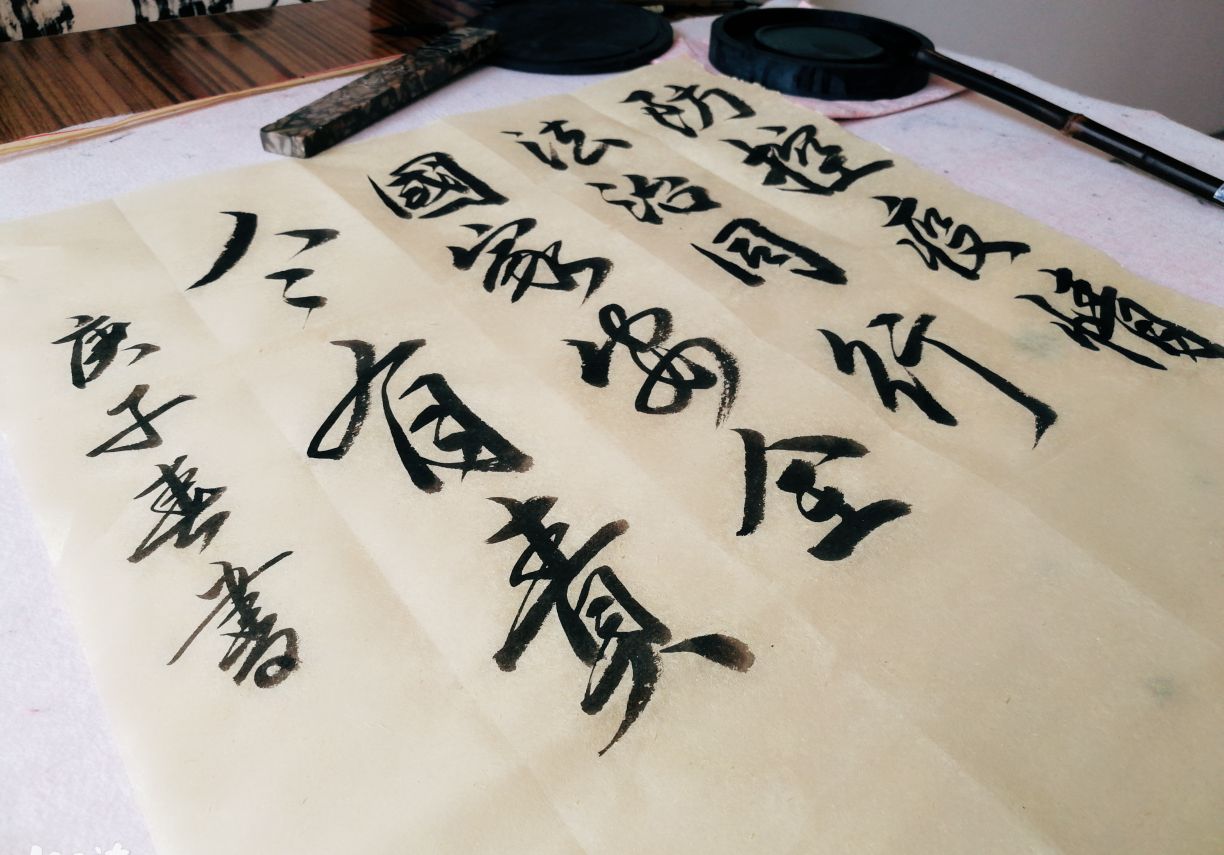 防控疫情
法治同行
國家安全
人人有責
庚子春書